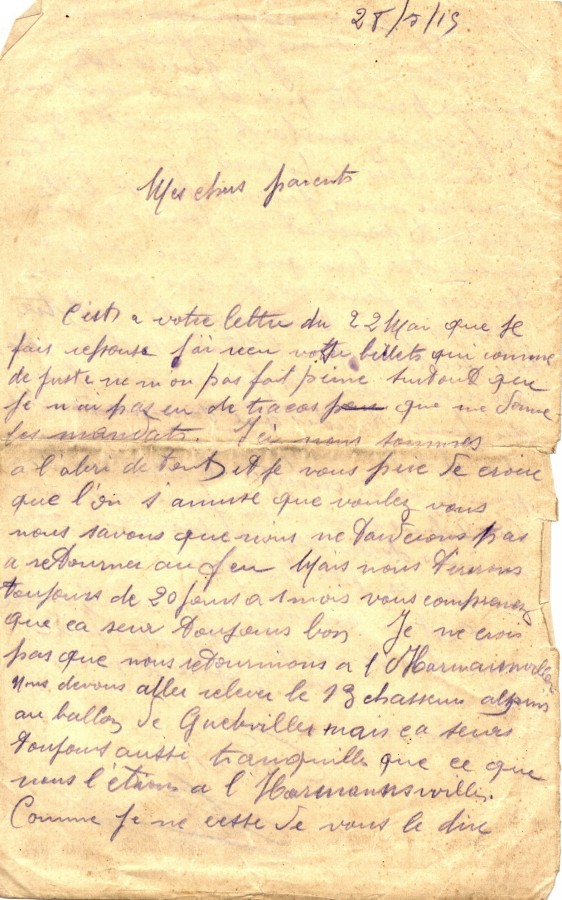 28/5/15
Mes chers parents
C'est a votre lettre du 22 Mai que je
fais reponse j'ai recu votre billets qui comme
de juste ne m'on pas fait peine surtout que
je n'ai pas eu de tracas peu que me donne
les mandats. Ici nous sommes
a l'abri de tout et je vous prie de croire
que l'on s'amuse que voulez vous
nous savons que nous ne tarderons pas
a retourner au feu Mais nous tirerons
toujours de 20 jours a 1 mois vous comprenez
que ca sera toujours bon. Je ne crois
pas que nous retournions a l'Harmannsviller
nous devons aller relever le 13 chasseurs alpins
au ballon de Guebviller mais ca sera
toujours aussi tranquille que ce que
nous l'étions a l'Harmannswiller.
Comme je ne cesse de vous le dire